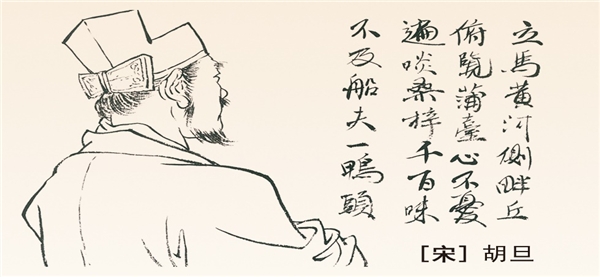 立馬黄河側畔丘
俯覽蒲臺心不憂
遍啖桑梓千百味
不及船夫一鴨頭
［宋］胡旦